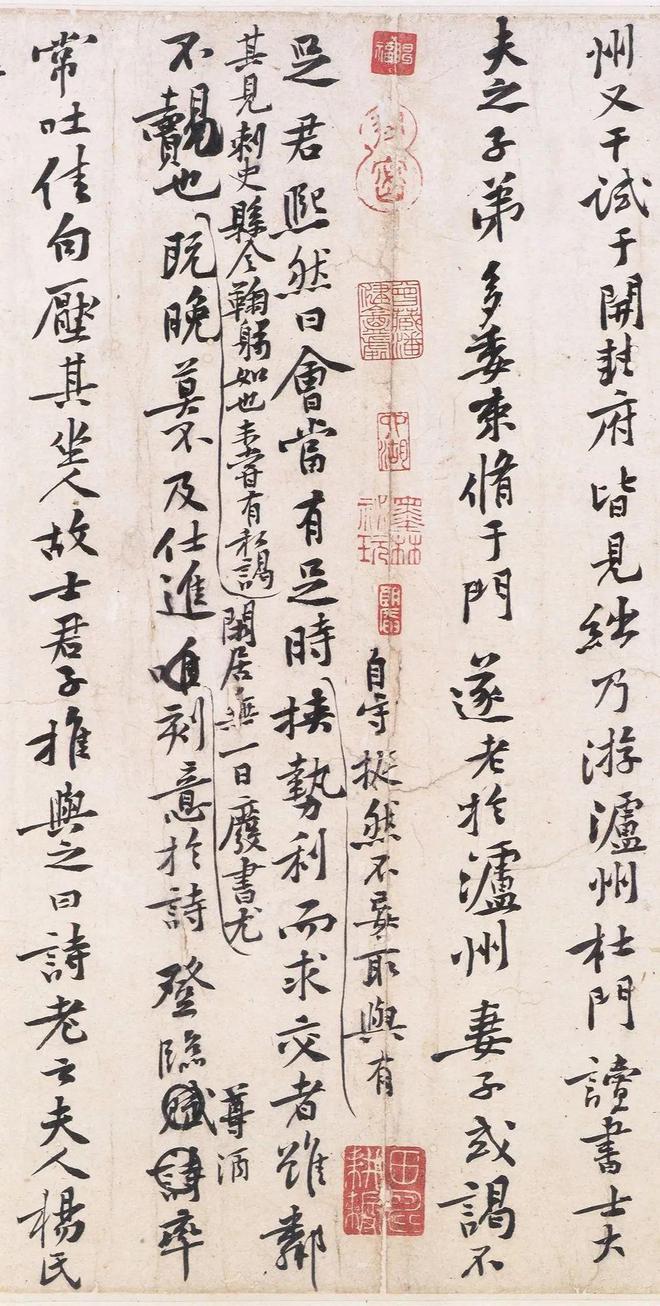 州又干試于開封府皆見絀乃游瀘州杜門讀書士大
夫之子弟多委束脩于門遂老於瀘州妻子或謁不
自守挺然不妄取與有
足君熙然曰會當有足時挾勢利而求交者雖鄰
其見刺史縣令鞠躬如也未嘗有私謁
閑居無一日廢書尤
尊酒
不覿也既晚莫不及仕進唯刻意於詩登臨賦詩率
常吐佳句壓其坐人故士君子推與之曰詩老云夫人楊氏
墨林祕玩